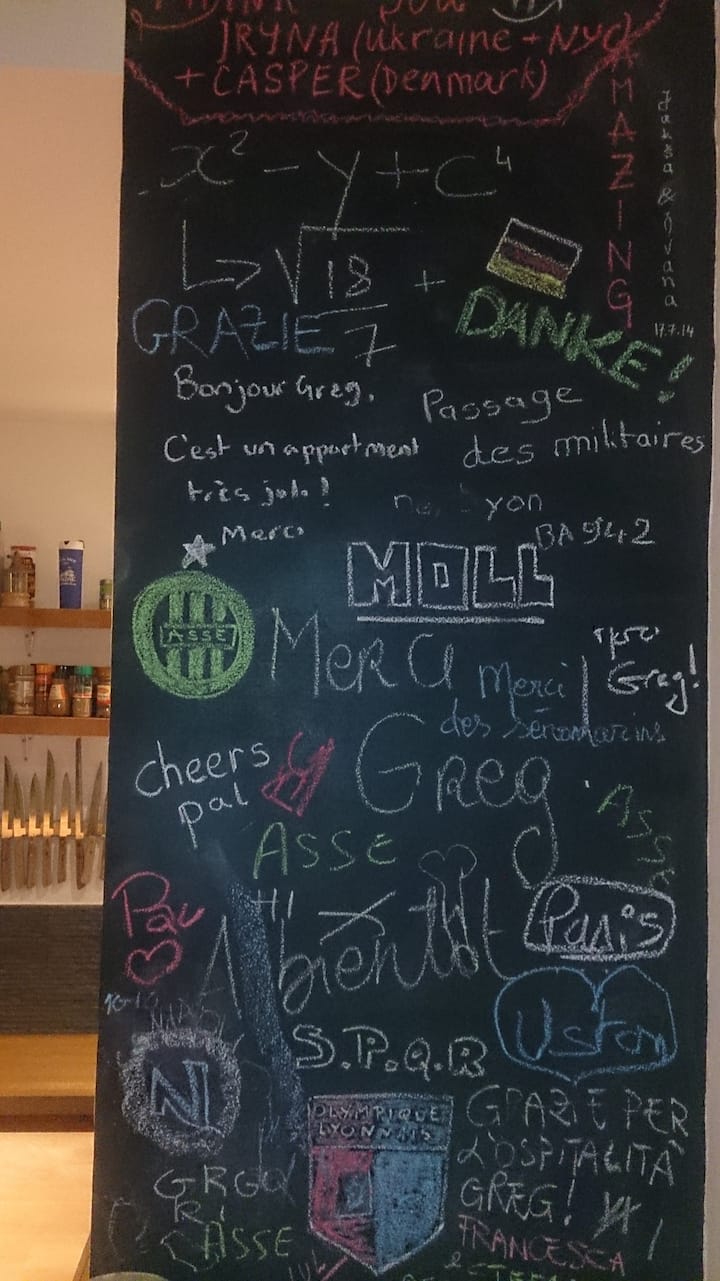 THANK you
IRYNA (Ukraine + NYC)
+ CASPER (Denmark)
AMAZING
& Ivana
17.7.14
x² - y + c⁴
√18 +
7
GRAZIE
DANKE!
Bonjour Greg,
C'est un appartment
très joli!
Merci
Passage
des militaires
Lyon
BA 942
MOLL
ASSE
Merci
Greg
Merci
des
Greg!
cheers
pal
ASSE
ASSE
Pau
HI
A bientôt
Paris
NAPOLI
N
S.P.Q.R
OLYMPIQUE
LYONNAIS
GRAZIE PER
L'OSPITALITÀ
GREG!
FRANCESCA
ASSE